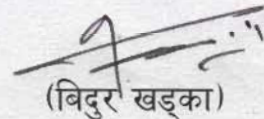 (बिदुर खड्का)